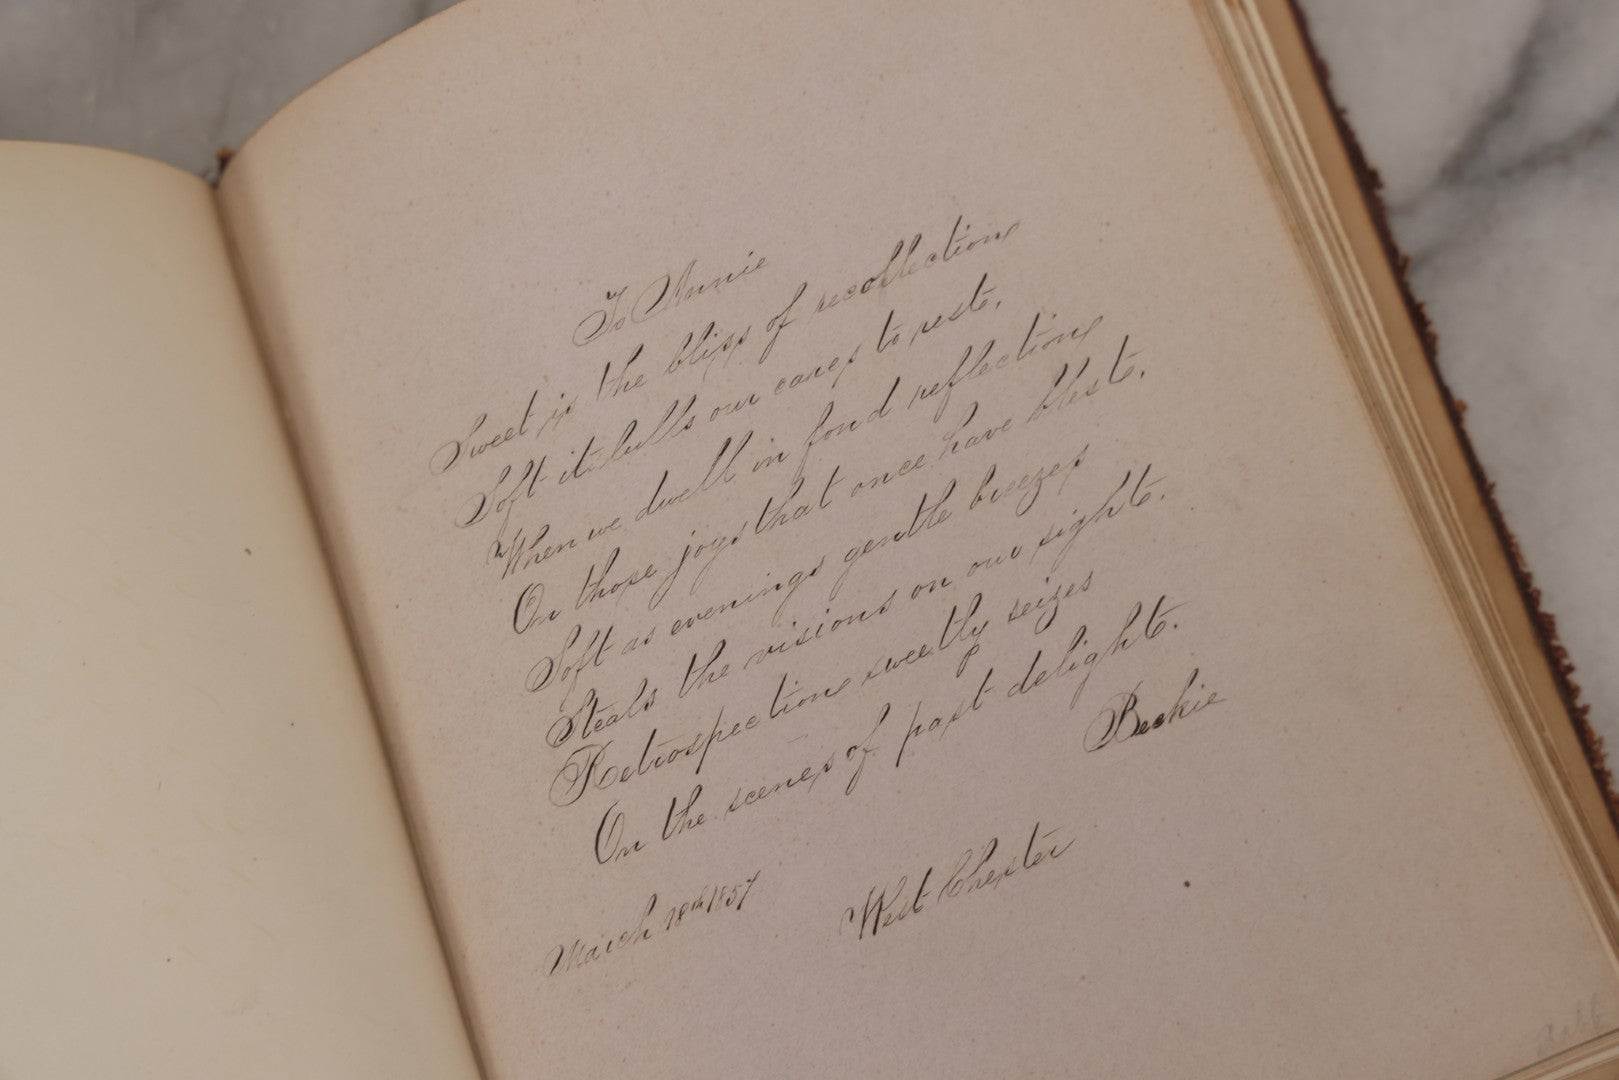 To Annie
Sweet is the bliss of recollection
Soft it lulls our cares to rest,
When we dwell in fond reflection
On those joys that once have blest.
Soft as evenings gentle breezes
Steals the visions on our sight.
Retrospection sweetly seizes
On the scenes of past delight.
Beckie
March 18th 1857
West Chester